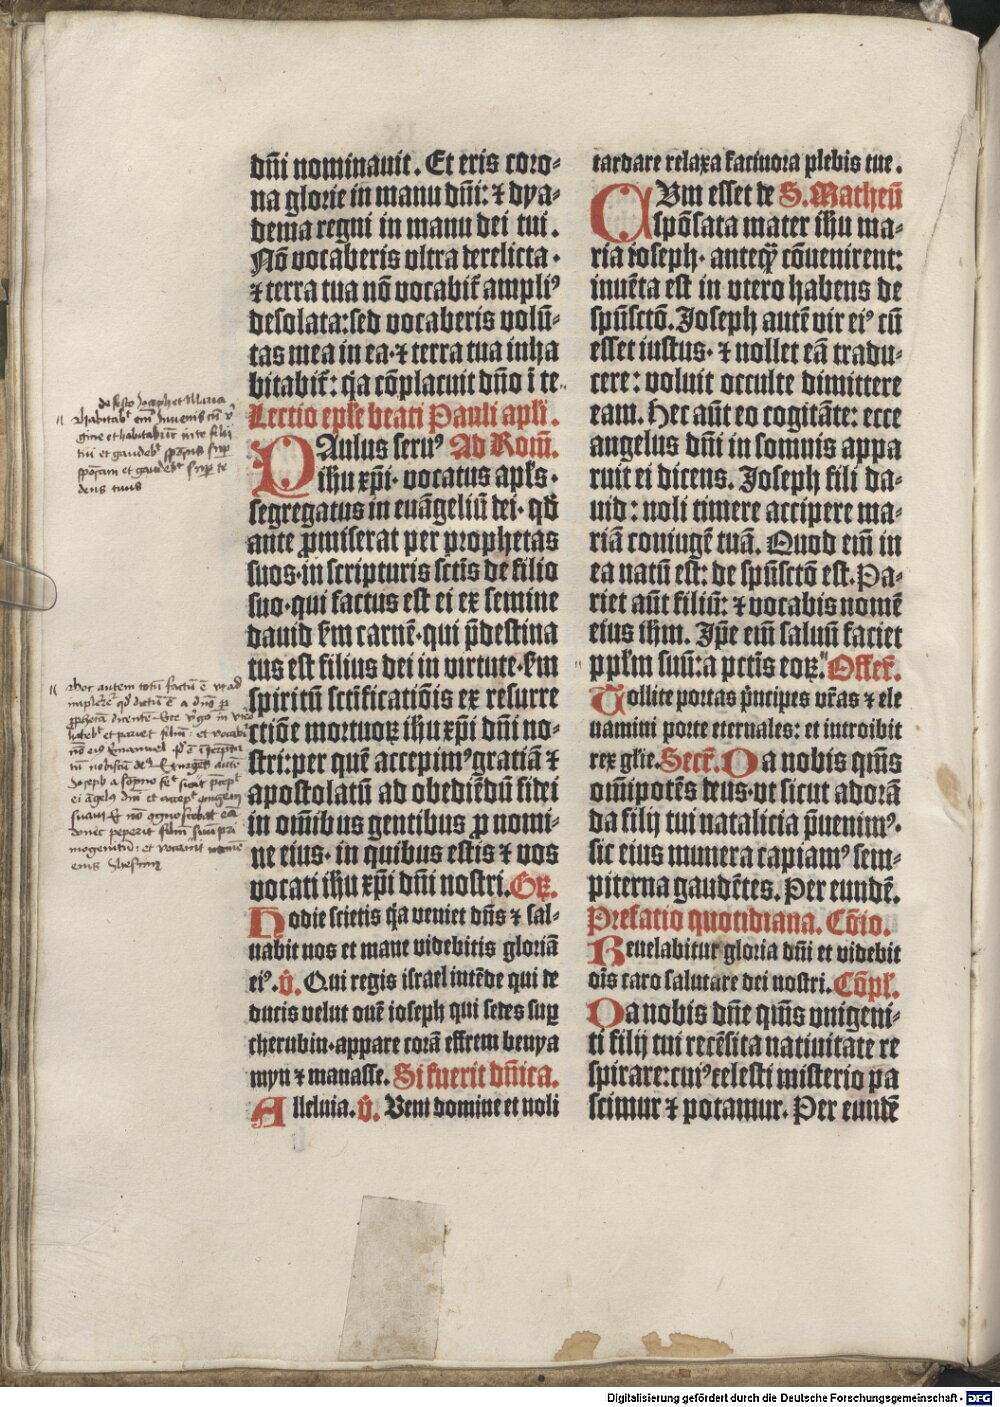 dñi nominauit. Et eris coro-
na glorie in manu dñi: ⁊ dya-
dema regni in manu dei tui.
Nõ vocaberis vltra derelicta.
⁊ terra tua nõ vocabit᷑ ampliꝰ
desolata: sed vocaberis volũ-
tas mea in ea. ⁊ terra tua inha
bitabit᷑: q̃a cõplacuit dño ĩ te
Lectio epl̃e beati Pauli apl̃i.
PAulus seruꝰ Ad Rom̃.
ih̃u xp̃i. vocatus apl̃s.
segregatus in euãgeliũ dei. qđ
ante ꝓmiserat per prophetas
suos. in scripturis sctĩs de filio
suo. qui factus est ei ex semine
dauid ẜm carnẽ. qui p̃destina
tus est filius dei in virtute. ẜm
spiritũ sctĩficatiõis ex resurre
ctiõe mortuoꝝ ih̃u xp̃i dñi no-
stri: per quẽ accepimꝰ gratiã ⁊
apostolatũ ad obediẽdũ fidei
in om̃ibus gentibus ꝓ nomi-
ne eius. in quibus estis ⁊ vos
vocati ih̃u xp̃i dñi nostri. Gꝝ.
Hodie scietis q̃a veniet dñs ⁊ sal-
uabit vos et mane videbitis gloriã
eiꝰ. v̾. Qui regis israel intẽde qui de
ducis velut ouẽ ioseph qui sedes suꝑ
cherubin. appare corã effrem benya
myn ⁊ manasse. Si fuerit dñica.
Alleluia. v̾. Veni domine et noli
tardare relaxa facinora plebis tue.
CVm esset de S. Matheũ
spõsata mater ih̃u ma-
ria ioseph. anteq̃ꝫ cõuenirent:
inuẽta est in vtero habens de
spũsctõ. Joseph autẽ vir eiꝰ cũ
esset iustus. ⁊ nollet eã tradu-
cere: voluit occulte dimittere
eam. Hec aũt eo cogitãte: ecce
angelus dñi in somnis appa
ruit ei dicens. Joseph fili da-
uid: noli timere accipere ma-
riã coniugẽ tuã. Quod eĩm in
ea natũ est: de spũsctõ est. Pa-
riet aũt filiũ: ⁊ vocabis nomẽ
eius ih̃m. Ip̃e eĩm saluũ faciet
ppl̃m suũ: a pctĩs eoꝝ. Offer̃.
Tollite portas p̃ncipes vr̃as ⁊ ele
uamini porte eternales: et introibit
rex gl̃ie. Secr̃. Da nobis qm̃s
om̃ipotẽs deus. vt sicut adorã
da filij tui natalicia p̃uenimꝰ.
sic eius munera capiamꝰ sem-
piterna gaudẽtes. Per eundẽ.
Prefatio quotidiana. Cõio.
Reuelabitur gloria dñi et videbit
oĩs caro salutare dei nostri. Cõpl̃.
Da nobis dñe qm̃s vnigeni-
ti filij tui recẽsita natiuitate re
spirare: cuiꝰ celesti misterio pa
scimur ⁊ potamur. Per eundẽ
de festo Joseph et Maria
habitab᷑ em̃ Juuenis cũ v̾
gine et habitabũt in te filij
tui et gaudeb᷑ spõsus suꝑ
spõsam et gaudeb᷑ suꝑ te
deus tuus
Hoc autem totũ factũ ẽ vt ad
impler̃e᷑ qđ dictũ ẽ a dño ꝑ
ꝓphetã dicente. Ecce v̾go in vtero
habeb᷑ et pariet filiũ: et vocabi᷑
nõ eiꝰ Emanuel qđ ẽ ĩterp̃ta
tũ nobiscũ deꝰ. Exurgẽs autẽ
Joseph a sõpno fec᷑ sicut p̃cep᷑
ei ãgelꝰ dñi et accep᷑ ꝯiugem
suam et nõ ꝯgnoscebat eã
donec peperit filiũ suũ pri
mogenitũ: et vocauit nomẽ
eius Jhesum
Digitalisierung gefördert durch die Deutsche Forschungsgemeinschaft - DFG